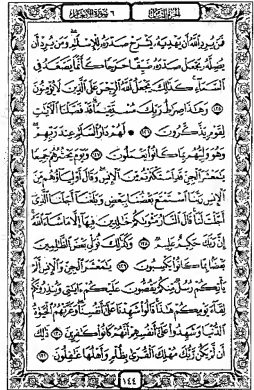 الجزء الثامن ٦ سورة الأنعام
فَمَن يُرِدِ ٱللَّهُ أَن يَهْدِيَهُۥ يَشْرَحْ صَدْرَهُۥ لِلْإِسْلَٰمِ وَمَن يُرِدْ أَن
يُضِلَّهُۥ يَجْعَلْ صَدْرَهُۥ ضَيِّقًا حَرَجًا كَأَنَّمَا يَصَّعَّدُ فِى
ٱلسَّمَآءِ كَذَٰلِكَ يَجْعَلُ ٱللَّهُ ٱلرِّجْسَ عَلَى ٱلَّذِينَ لَا يُؤْمِنُونَ
١٢٥ وَهَٰذَا صِرَٰطُ رَبِّكَ مُسْتَقِيمًا قَدْ فَصَّلْنَا ٱلْءَايَٰتِ
لِقَوْمٍ يَذَّكَّرُونَ ١٢٦ لَهُمْ دَارُ ٱلسَّلَٰمِ عِندَ رَبِّهِمْ
وَهُوَ وَلِيُّهُم بِمَا كَانُوا۟ يَعْمَلُونَ ١٢٧ وَيَوْمَ يَحْشُرُهُمْ جَمِيعًا
يَٰمَعْشَرَ ٱلْجِنِّ قَدِ ٱسْتَكْثَرْتُم مِّنَ ٱلْإِنسِ وَقَالَ أَوْلِيَآؤُهُم مِّنَ
ٱلْإِنسِ رَبَّنَا ٱسْتَمْتَعَ بَعْضُنَا بِبَعْضٍ وَبَلَغْنَآ أَجَلَنَا ٱلَّذِىٓ
أَجَّلْتَ لَنَا قَالَ ٱلنَّارُ مَثْوَىٰكُمْ خَٰلِدِينَ فِيهَآ إِلَّا مَا شَآءَ ٱللَّهُ
إِنَّ رَبَّكَ حَكِيمٌ عَلِيمٌ ١٢٨ وَكَذَٰلِكَ نُوَلِّى بَعْضَ ٱلظَّٰلِمِينَ
بَعْضًۢا بِمَا كَانُوا۟ يَكْسِبُونَ ١٢٩ يَٰمَعْشَرَ ٱلْجِنِّ وَٱلْإِنسِ أَلَمْ
يَأْتِكُمْ رُسُلٌ مِّنكُمْ يَقُصُّونَ عَلَيْكُمْ ءَايَٰتِى وَيُنذِرُونَكُمْ
لِقَآءَ يَوْمِكُمْ هَٰذَا قَالُوا۟ شَهِدْنَا عَلَىٰٓ أَنفُسِنَا وَغَرَّتْهُمُ ٱلْحَيَوٰةُ
ٱلدُّنْيَا وَشَهِدُوا۟ عَلَىٰٓ أَنفُسِهِمْ أَنَّهُمْ كَانُوا۟ كَٰفِرِينَ ١٣٠ ذَٰلِكَ
أَن لَّمْ يَكُن رَّبُّكَ مُهْلِكَ ٱلْقُرَىٰ بِظُلْمٍ وَأَهْلُهَا غَٰفِلُونَ ١٣١
١٤٤